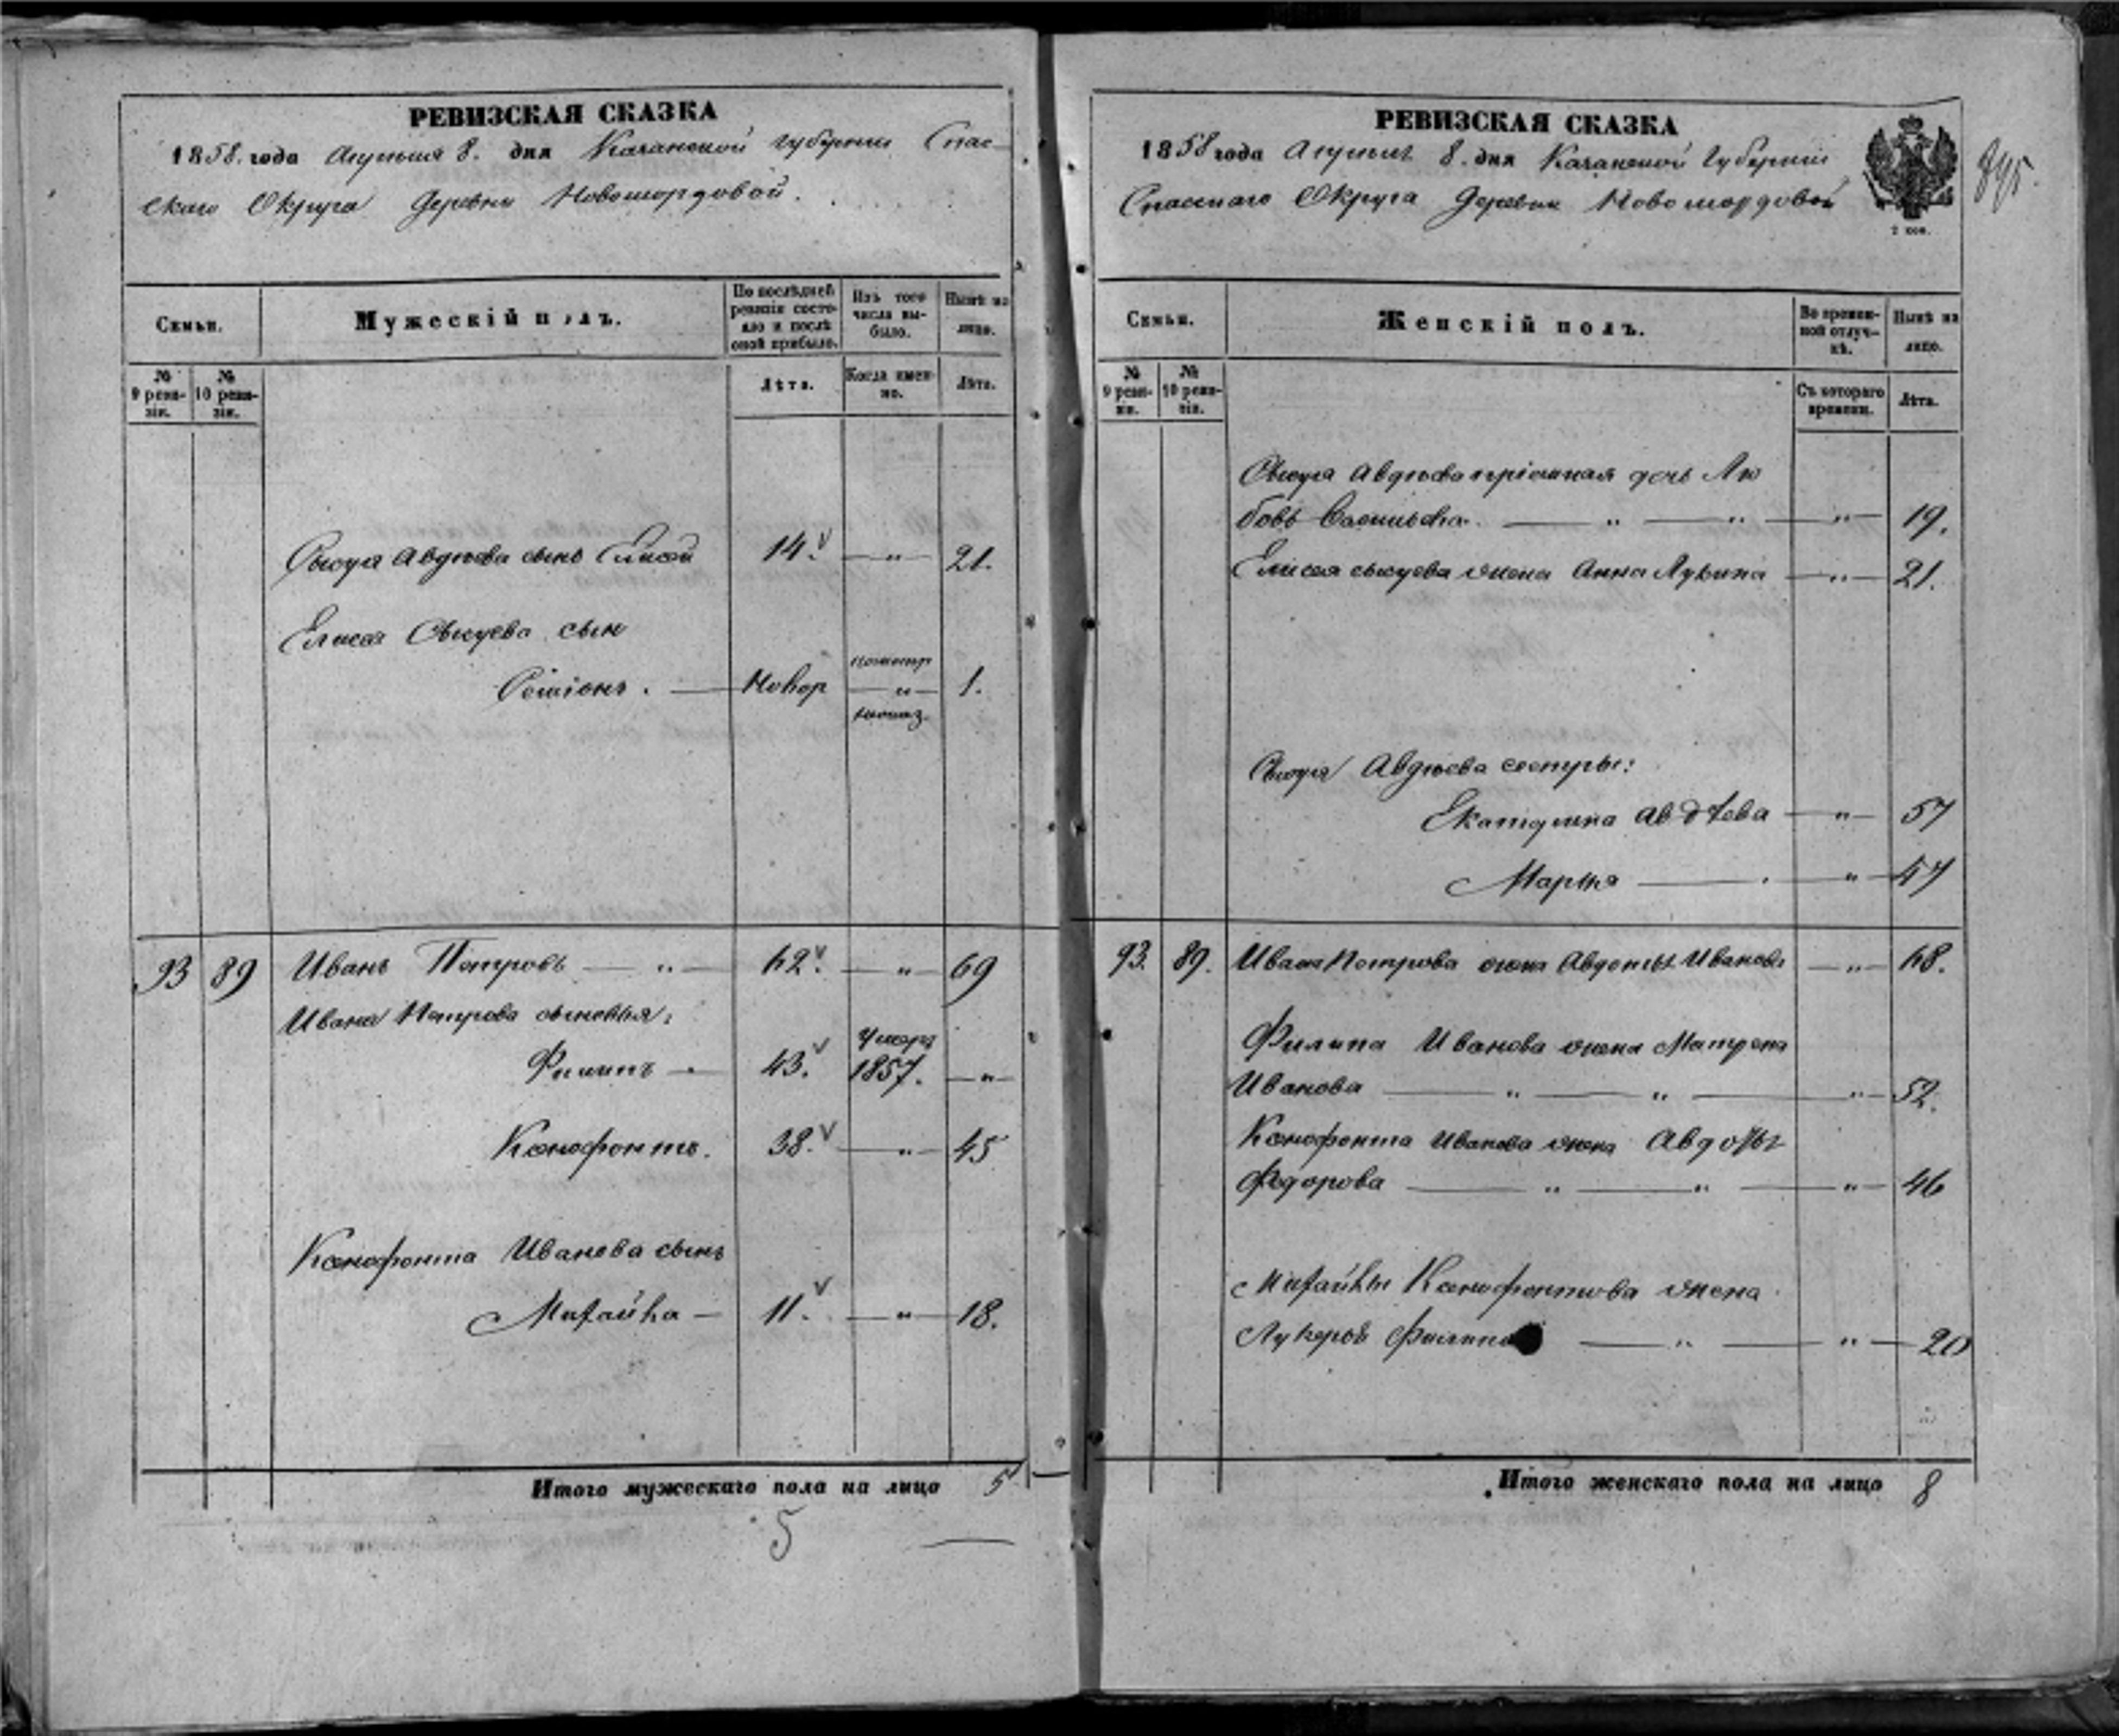 РЕВИЗСКАЯ СКАЗКА
1858. года 8. дня Казанской губернии Спас-
скаго Округа Деревни Новомордовой.
Семьи.
Мужескій полъ.
По послѣдней ревизіи состо-яло и послѣ оной прибыло.
Изъ того числа вы-было.
Нынѣ на лицо.
№ 9 реви-зіи.
№ 10 реви-зіи.
Лѣта.
Когда имен-но.
Лѣта.
Сысуя Авдѣева сынъ Елисей 14. — „ — 21.
Елисея Сысуева сын
— Новор — „ — 1.
93 89 Иванъ Петровъ — „ — 62. — „ — 69
Ивана Петрова сыновья:
Филипъ — 43. Умеръ 1857. — „ —
Ксенофонтъ. 38. — „ — 45
Ксенофонта Иванова сынъ
Михайла — 11. — „ — 18.
Итого мужескаго пола на лицо 5
5
РЕВИЗСКАЯ СКАЗКА
1858 года 8. дня Казанской Губерніи
Спасскаго Округа Деревни Новомордовой
2 коп.
895.
Семьи.
Женскій полъ.
Во времен-ной отлуч-кѣ.
Нынѣ на лицо.
№ 9 реви-зіи.
№ 10 реви-зіи.
Съ котораго времени.
Лѣта.
Сысуя Авдѣева пріемная дочь Лю
бовь Васильева. — „ — „ — „ — 19.
Елисея сысуева жена Анна Лукина — „ — 21.
Сысуя Авдѣева сестры:
Екатерина Авдѣева — „ — 57
Марья — „ — 47
93. 89. Ивана Петрова жена Авдотья Иванова — „ — 68.
Филипа Иванова жена Матрена
Иванова — „ — „ — „ — 52.
Ксенофонта Иванова жена Авдотья
Федорова — „ — „ — „ — 46
Михайлы Ксенофонтова жена
Лукерья Филипова — „ — „ — 20
Итого женскаго пола на лицо 8